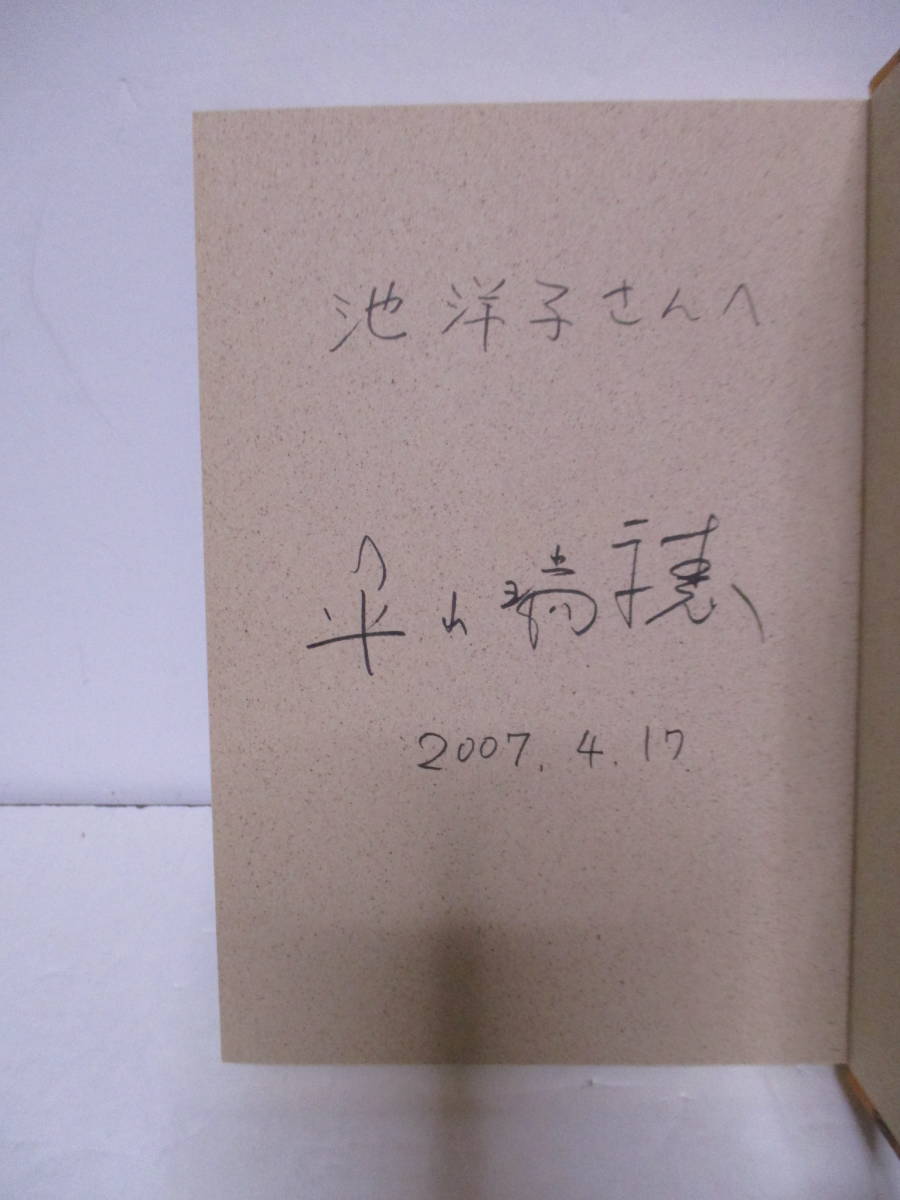 池 洋子さんへ
傘山瑞穂
2007. 4. 17